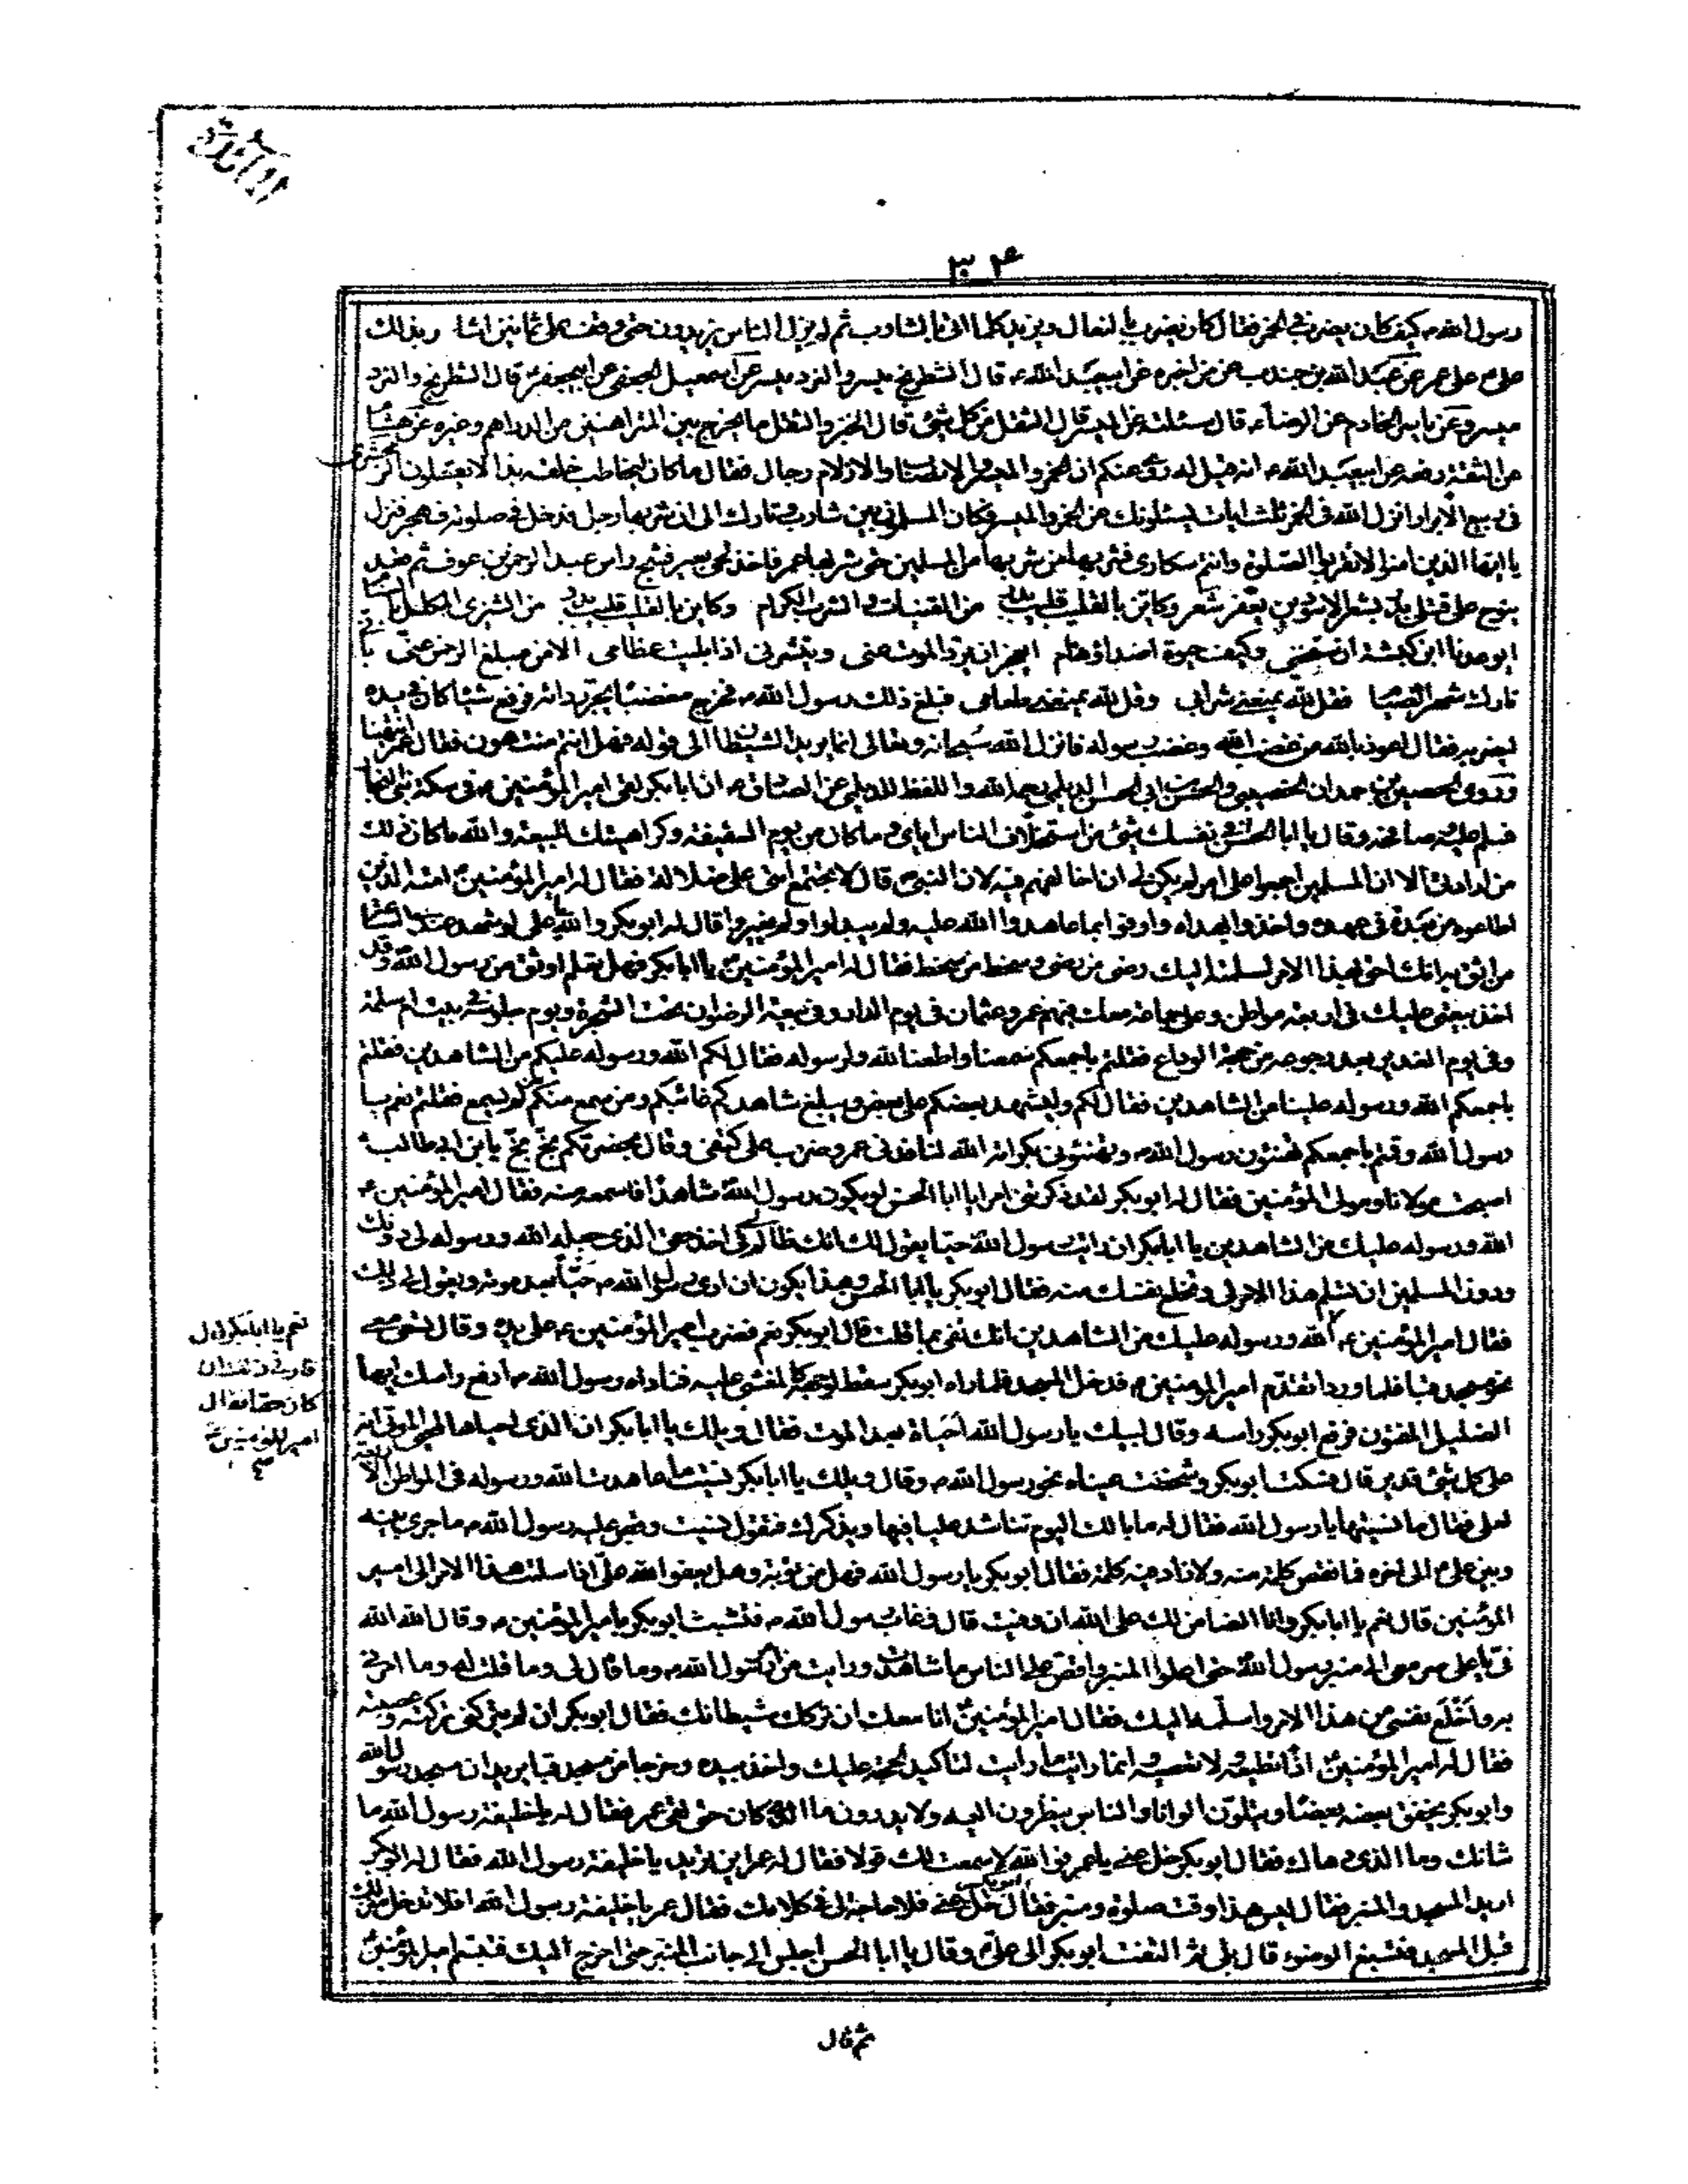 ٣٤
رسول الله ص كيف كان يضرب في الخمر فقال كان يضرب بالنعال ويزيد كلما اتى بالشارب ثم لم يزل الناس يزيدون حتى وقف على ثمانين اشار بذلك
علي ع على عمر عن عبد الله بن جندب عمن اخبره عن ابيعبد الله ع قال الشطرنج ميسر والنرد ميسر عن اسمعيل الجعفي عن ابيجعفر ع قال الشطرنج والنرد
ميسر وعن ياسر الخادم عن الرضا ع قال سئلته عن الميسر قال الثفل من كل شيء قال الخبز والثفل ما يخرج بين المتراهنين من الدراهم وغيره عن هشام
عن الثقة رفعه عن ابيعبد الله ع انه قيل له روى عنكم ان الخمر والميسر والانصاب والازلام رجال فقال ما كان ليخاطب خلقه بما لا يعقلون
في ربيع الابرار انزل الله في الخمر ثلث ايات يسئلونك عن الخمر والميسر فكان المسلمون بين شارب وتارك الى ان شربها رجل فدخل في صلوته فهجر فنزل
يا ايها الذين امنوا لا تقربوا الصلوة وانتم سكارى فشربها من شربها من المسلمين حتى شربها عمر فاخذ لحى بعير فشج راس عبد الرحمن بن عوف ثم قعد
ينوح على قتلى بدر بشعر الاسود بن يعفر شعر وكائن بالقليب قليب بدر من القينات والشرب الكرام وكاين بالقليب قليب بدر من الشيزى المكلل بالسنام
ايوعدنا ابن كبشة ان سنحيى وكيف حيوة اصداء وهام ايعجز ان يرد الموت عني وينشرني اذا بليت عظامي الا من مبلغ الرحمن عني باني
تارك شهر الصيام فقل لله يمنعني شرابي وقل لله يمنعني طعامي فبلغ ذلك رسول الله ص فخرج مغضبا يجر ردائه فرفع شيئا كان في يده
ليضربه فقال اعوذ بالله من غضب الله وغضب رسوله فانزل الله سبحانه وتعالى انما يريد الشيطان الى قوله فهل انتم منتهون فقال عمر انتهينا
وروى الحصين بن حمدان الخصيبي والحسن بن ابي الحسن الديلمي رحمهما الله واللفظ للديلمي عن الصادق ع ان ابابكر لقى امير المؤمنين ع في سكة بني النجار
فسلم عليه وصافحه وقال يا ابا الحسن في نفسك شيء من استخلاف الناس اياي وما كان من يوم السقيفة وكراهيتك البيعة والله ما كان ذلك
من ارادتي الا ان المسلمين اجمعوا على امر لم يكن لي ان اخالفهم فيه لان النبي ص قال لا يجتمع امتي على ضلالة فقال له امير المؤمنين ع امته الذين
اطاعوه من بعده في عهده واخذوا بهداه واوفوا بما عاهدوا الله عليه ولم يبدلوا ولم يغيروا قال له ابوبكر والله يا علي لو شهد عندي الساعة
من اثق به انك احق بهذا الامر لسلمته اليك رضى من رضى وسخط من سخط فقال له امير المؤمنين ع يا ابابكر فهل تعلم اوثق من رسول الله ص وقد
اخذ بيعتي عليك في اربعة مواطن وعلى جماعة معك فيهم عمر وعثمان في يوم الدار وفي بيعة الرضوان تحت الشجرة ويوم جلوسه في بيت ام سلمة
وفي يوم الغدير بعد رجوعه من حجة الوداع فقلتم باجمعكم سمعنا واطعنا لله ولرسوله فقال لكم الله ورسوله عليكم من الشاهدين فقلتم
باجمعكم الله ورسوله علينا من الشاهدين فقال لكم وليشهد بعضكم على بعض ويبلغ شاهدكم غائبكم ومن سمع منكم من لم يسمع فقلتم نعم يا
رسول الله وقمتم باجمعكم تهنئون رسول الله ص وتهنئوني بكرامة الله لنا فدنى عمر وضرب على كتفى وقال بحضرتكم بخ بخ يا بن ابي طالب
اصبحت مولانا ومولى المؤمنين فقال له ابوبكر لقد ذكرتني امرا يا ابا الحسن لو يكون رسول الله ص شاهدا فاسمعه منه فقال امير المؤمنين ع
الله ورسوله عليك من الشاهدين يا ابابكر ان رايت رسول الله ص حيا يقول لك انك ظالم لي في اخذ حقى الذي جعله الله ورسوله لي دونك
ودون المسلمين ان تسلم هذا الامر لي وتخلع نفسك منه فقال ابوبكر يا ابا الحسن وهذا يكون ان ارى رسول الله ص حيا بعد موته ويقول لي ذلك
فقال امير المؤمنين ع نعم يا ابابكر قال فارني ذلك ان كان حقا فقال امير المؤمنين ع الله ورسوله عليك من الشاهدين انك تفى بما قلت قال ابوبكر نعم فضرب امير المؤمنين ع على يده وقال تسعى معي
نحو مسجد قبا فلما وردا تقدم امير المؤمنين ع فدخل المسجد فلما راه ابوبكر سقط لوجهه كالمغشى عليه فناداه رسول الله ص ارفع راسك ايها
الضليل المفتون فرفع ابوبكر راسه وقال لبيك يا رسول الله احياة بعد الموت فقال ويلك يا ابابكر ان الذي احياها لمحيي الموتى انه
على كل شيء قدير قال فسكت ابوبكر وشخصت عيناه نحو رسول الله ص وقال ويلك يا ابابكر نسيت ما عاهدت الله ورسوله في المواطن الاربعة
لعلي فقال ما نسيتها يا رسول الله فقال له ما بالك اليوم تناشد عليا فيها ويذكرك فتقول نسيت وقص عليه رسول الله ص ما جرى بينه
وبين علي ع الى اخره فما نقص كلمة منه ولا زاد فيه كلمة فقال ابوبكر يا رسول الله فهل من توبة وهل يعفو الله عني اذا سلمت هذا الامر الى امير
المؤمنين قال نعم يا ابابكر وانا الضامن لك على الله ان وفيت قال وغاب رسول الله ص فتشبث ابوبكر بامير المؤمنين ع وقال الله الله
في يا علي صر معي الى منبر رسول الله ص حتى اعلوا المنبر واقص على الناس ما شاهدت ورايت من رسول الله ص وما قال لي وما قلت له وما امرني
به واخلع نفسي من هذا الامر واسلمه اليك فقال امير المؤمنين ع انا معك ان تركك شيطانك فقال ابوبكر ان لم يتركني تركته وعصيته
فقال له امير المؤمنين ع اذا تطيعه ولا تعصيه انما رايت ما رايت لتاكيد الحجة عليك واخذ بيده وخرجا من مسجد قبا يريدان مسجد رسول الله
وابوبكر يخفق بعضه بعضا ويتلون الوانا والناس ينظرون اليه ولا يدرون ما الذي كان حتى لقى عمر فقال له يا خليفة رسول الله ما
شانك وما الذي دهاك فقال ابوبكر خل عني يا عمر فوالله لا سمعت لك قولا فقال له عمر اين تريد يا خليفة رسول الله فقال له ابوبكر
اريد المسجد والمنبر فقال ليس هذا وقت صلوة ومنبر فقال ابوبكر خل عني فلا حاجة لي في كلامك فقال عمر يا خليفة رسول الله افلا تدخل منزلك
قبل المسجد فتسبغ الوضوء قال بلى ثم التفت ابوبكر الى علي ع وقال يا ابا الحسن اجلس الى جانب المنبر حتى اخرج اليك فتبسم امير المؤمنين ع
ثم قال